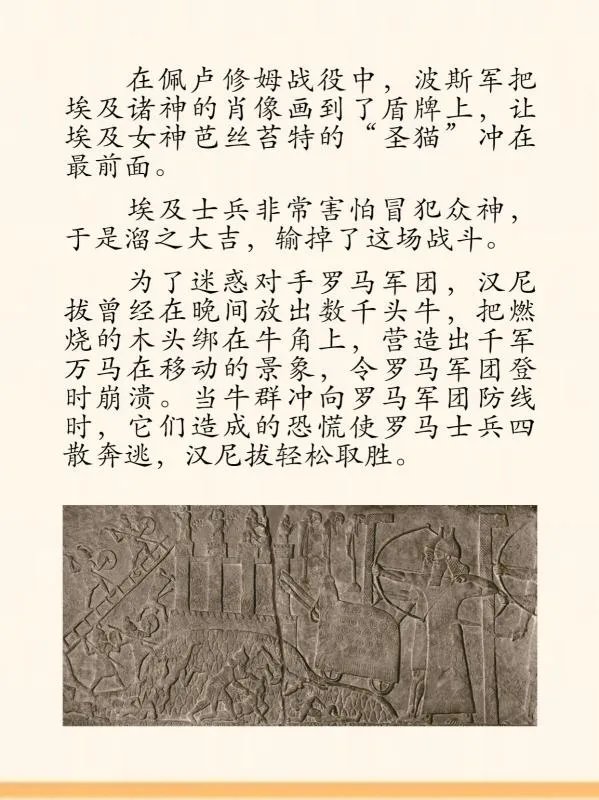 在佩卢修姆战役中，波斯军把
埃及诸神的肖像画到了盾牌上，让
埃及女神芭丝苔特的“圣猫”冲在
最前面。
埃及士兵非常害怕冒犯众神，
于是溜之大吉，输掉了这场战斗。
为了迷惑对手罗马军团，汉尼
拔曾经在晚间放出数千头牛，把燃
烧的木头绑在牛角上，营造出千军
万马在移动的景象，令罗马军团登
时崩溃。当牛群冲向罗马军团防线
时，它们造成的恐慌使罗马士兵四
散奔逃，汉尼拔轻松取胜。